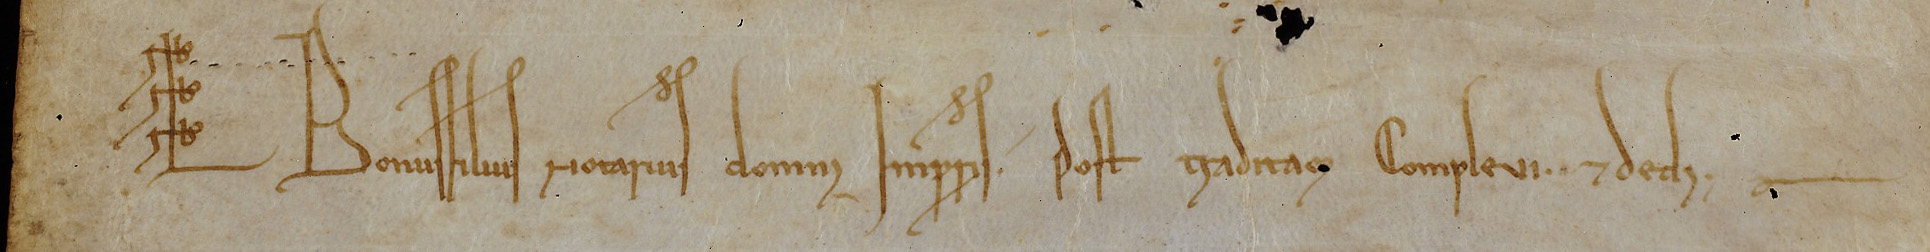 Bonussilius notarius domni Imprs. post traditam Complevi. & dedi.